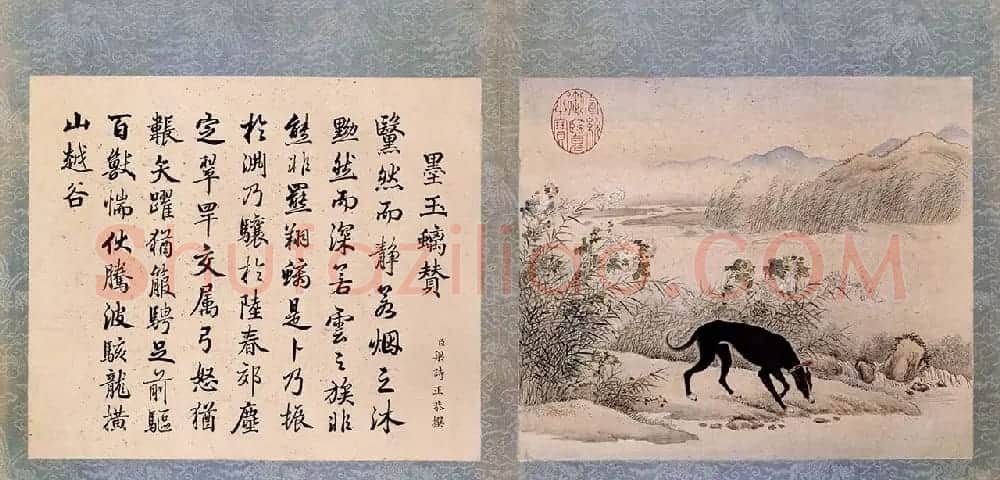 墨玉螭贊
臣梁詩正恭撰
黳然而静若烟之沐
黝然而深若雲之族非
熊非羆翔螭是卜乃振
於淵乃驤於陸春郊塵
定翠罕交属弓怒猶
韔矢躍猶箙騁足前驅
百獸惴伏騰波駭龍横
山越谷
Shufaziliao.COM